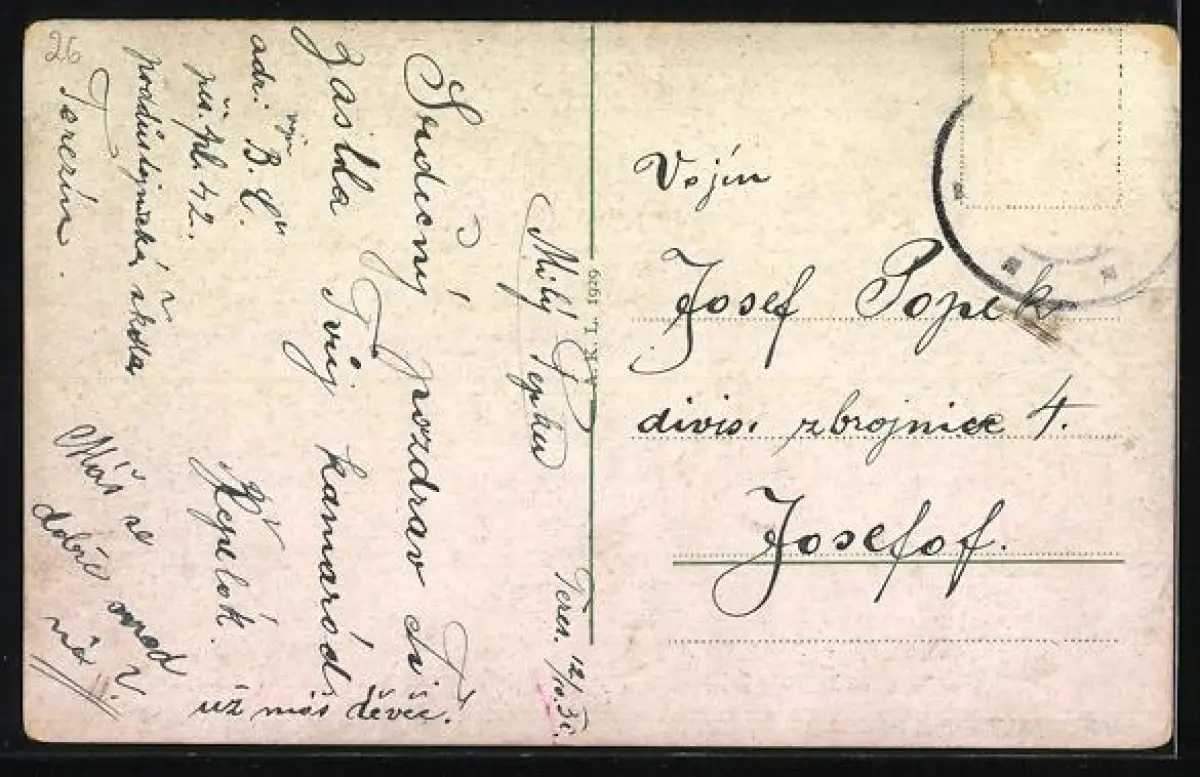 26
Milý Pepku
Terez. 12/10.
Srdečný pozdrav Ti
zasílá Tvůj kamarád
Řepelák.
adr. voj. B. Č.
pěš. pl. 42.
poddůstojnická škola
Terezín.
Máš se
dobře
už máš děvče.
A.K.L. 1929
Vojín
Josef Popek
divis. zbrojnice 4.
Josefof.